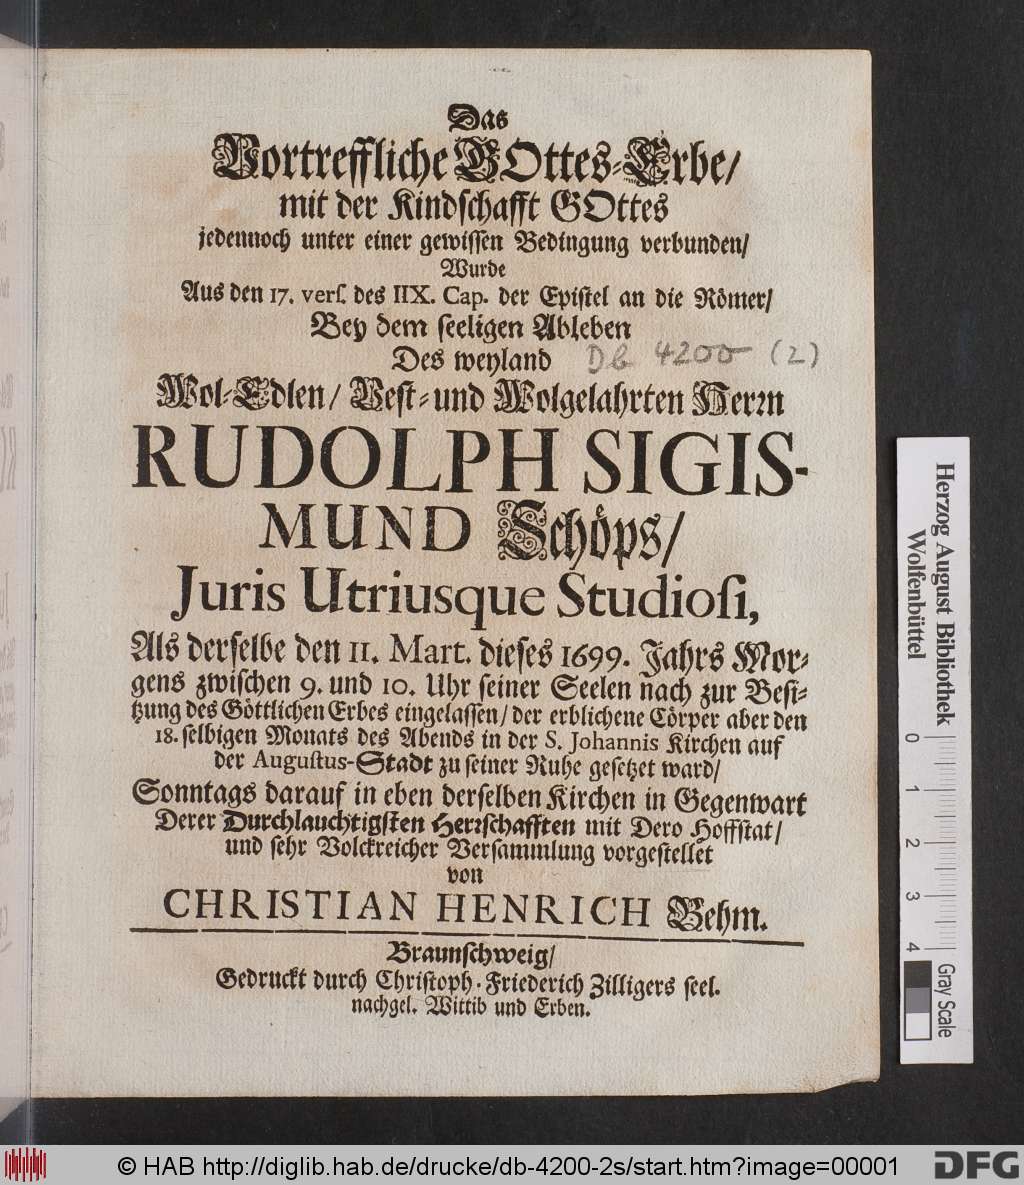 Das
Vortreffliche GOttes-Erbe/
mit der Kindschafft GOttes
jedennoch unter einer gewissen Bedingung verbunden/
Wurde
Aus den 17. vers. des IIX. Cap. der Epistel an die Römer/
Bey dem seeligen Ableben
Des weyland
Db 4200 (2)
Wol-Edlen/ Vest- und Wolgelahrten Herrn
RUDOLPH SIGIS-
MUND Schöps/
Juris Utriusque Studiosi,
Als derselbe den 11. Mart. dieses 1699. Jahrs Mor-
gens zwischen 9. und 10. Uhr seiner Seelen nach zur Besi-
tzung des Göttlichen Erbes eingelassen/ der erblichene Cörper aber den
18. selbigen Monats des Abends in der S. Johannis Kirchen auf
der Augustus-Stadt zu seiner Ruhe gesetzet ward/
Sonntags darauf in eben derselben Kirchen in Gegenwart
Derer Durchlauchtigsten Herrschafften mit Dero Hoffstat/
und sehr Volckreicher Versammlung vorgestellet
von
CHRISTIAN HENRICH Behm.
Braunschweig/
Gedruckt durch Christoph-Friederich Zilligers seel.
nachgel. Wittib und Erben.
Herzog August Bibliothek
Wolfenbüttel
0 1 2 3 4
Gray Scale
© HAB http://diglib.hab.de/drucke/db-4200-2s/start.htm?image=00001
DFG